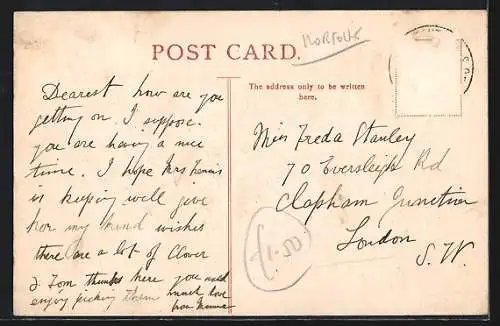 NORFOLK
POST CARD.
The address only to be written
here.
Dearest how are you
getting on. I suppose
you are having a nice
time. I hope Mrs
is keeping well give
her my kind wishes
there are a lot of Clover
& Tom thumbs here you would
enjoy picking them much love
from
Miss Freda Stanley
70 Eversleigh Rd
Clapham Junction
London
S. W.